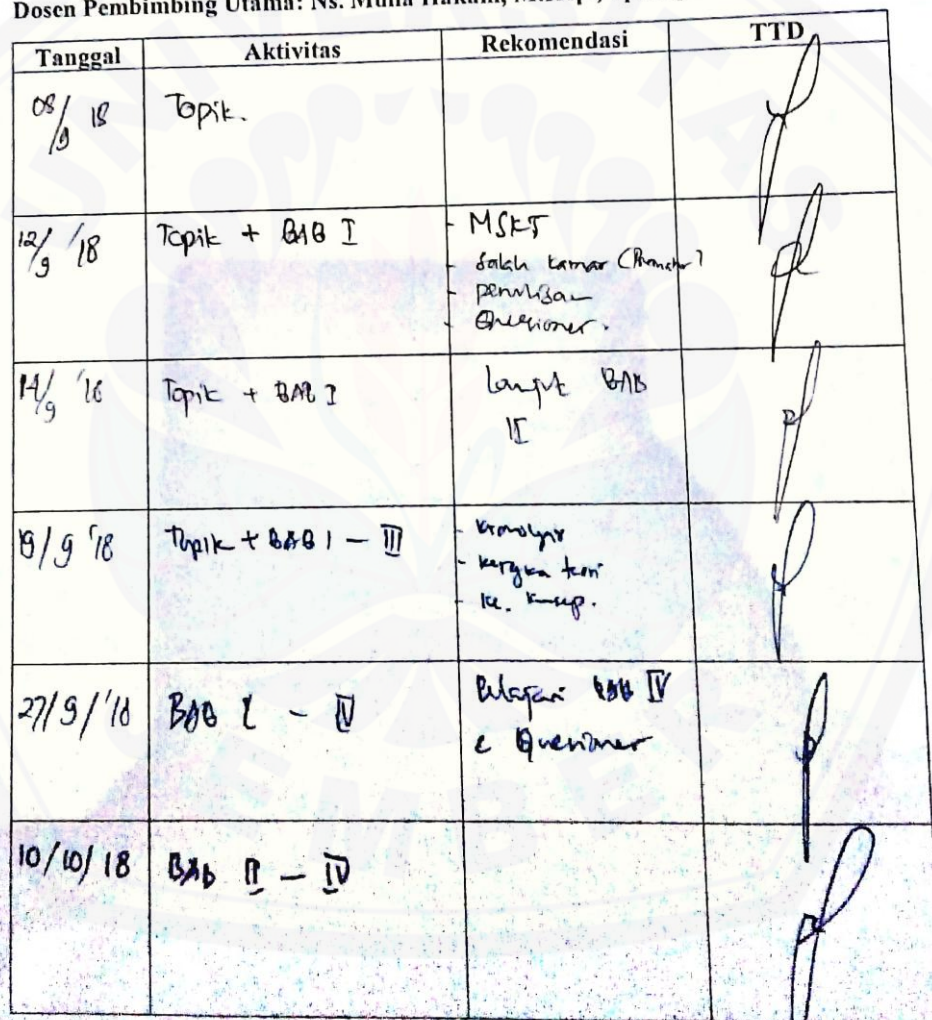 Dosen Pembimbing Utama: Ns. Mulia Hakam,
Tanggal Aktivitas Rekomendasi TTD
08/9 18 Topik.
12/9 '18 Topik + BAB I - MSKT
- Salah kamar
- penulisan
- Quesioner.
14/9 '18 Topik + BAB I Lanjut BAB
II
19/9 '18 Topik + BAB I - III - kronologis
- kerangka teori
- ke. konsep.
27/9/'18 BAB I - IV Pelajari BAB IV
c Quesioner
10/10/18 BAB II - IV
UNIVERSITAS
JEMBER